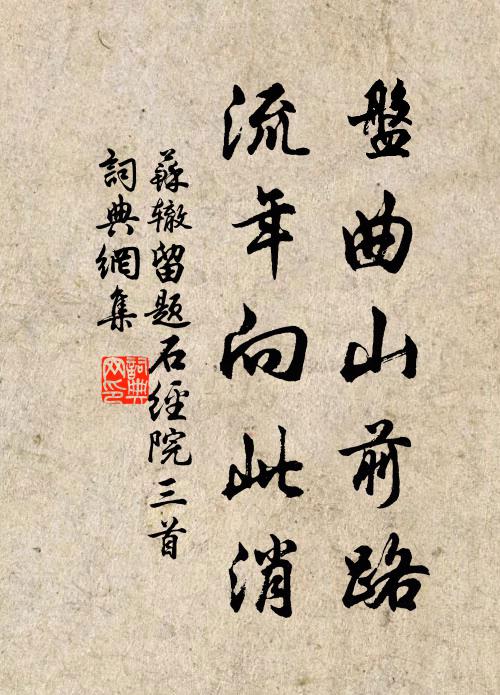 盤曲山前路
流年向此消
蘇辙留题石經院三首
詞典網集
詞典網印